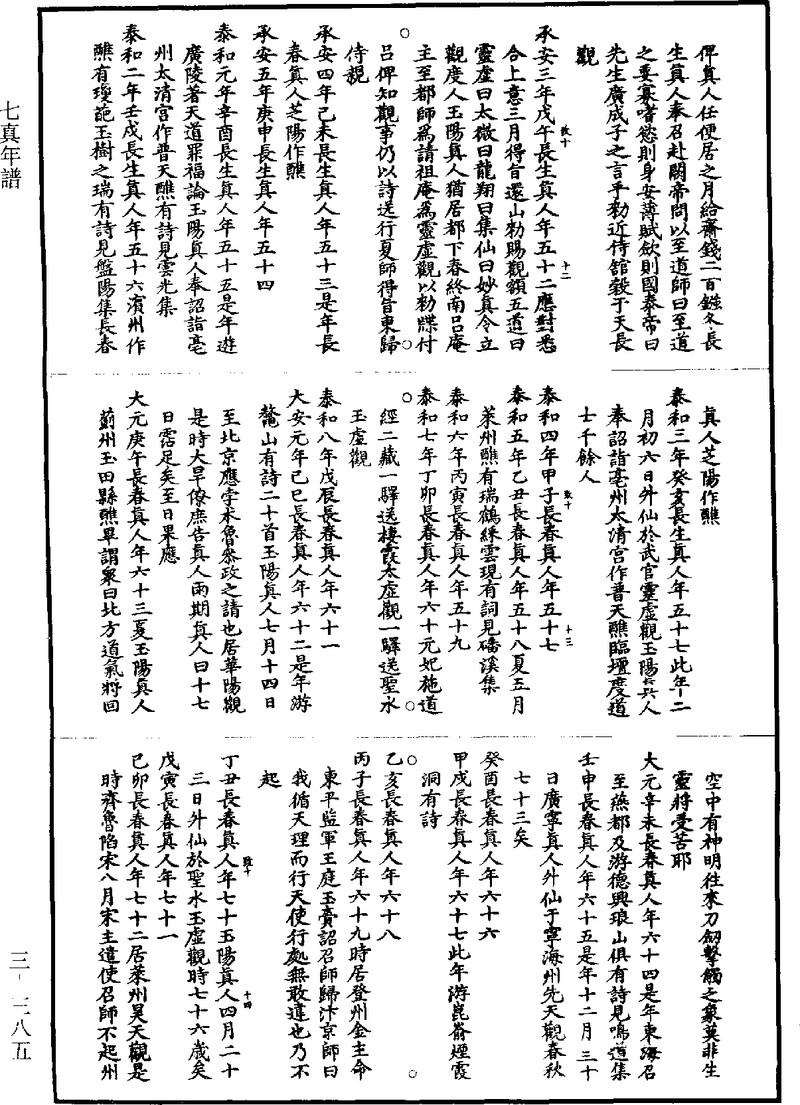 七真年譜
三-三八五
俾真人任便居之月給齋錢二百鏹冬長
生真人奉召赴闕帝問以至道師曰至道
之要寡嗜慾則身安薄賦斂則國泰帝曰
先生廣成子之言乎勑近侍舘轂于天長
觀
承安三年戊午長生真人年五十二應對悉
合上意三月得旨還山勑賜觀額五道曰
靈虛曰太微曰龍翔曰集仙曰妙真令立
觀度人玉陽真人猶居都下春終南呂庵
主至都師為請祖庵為靈虛觀以勑牒付
呂俾知觀事仍以詩送行夏師得旨東歸
侍親
承安四年己未長生真人年五十三是年長
春真人芝陽作醮
承安五年庚申長生真人年五十四
泰和元年辛酉長生真人年五十五是年遊
廣陵著天道罪福論玉陽真人奉詔詣亳
州太清宮作普天醮有詩見雲光集
泰和二年壬戌長生真人年五十六濱州作
醮有瓊葩玉樹之瑞有詩見盤陽集長春
真人芝陽作醮
泰和三年癸亥長生真人年五十七此年二
月初六日外仙於武官靈虛觀玉陽真人
奉詔詣亳州太清宮作普天醮臨壇度道
士千餘人
泰和四年甲子長春真人年五十七
泰和五年乙丑長春真人年五十八夏五月
萊州醮有瑞鶴綵雲現有詞見磻溪集
泰和六年丙寅長春真人年五十九
泰和七年丁卯長春真人年六十元妃施道
經二藏一驛送棲霞太虛觀一驛送聖水
玉虛觀
泰和八年戊辰長春真人年六十一
大安元年己巳長春真人年六十二是年游
鰲山有詩二十首玉陽真人七月十四日
至北京應孛朮魯叅政之請也居華陽觀
是時大旱僚庶告真人雨期真人曰十七
日霑足矣至日果應
大元庚午長春真人年六十三夏玉陽真人
薊州玉田縣醮畢謂眾曰北方道氣將回
空中有神明往來刀劒擊觸之象莫非生
靈將受苦耶
大元辛未長春真人年六十四是年東海召
至燕都及游德興琅山俱有詩見鳴道集
壬申長春真人年六十五是年十二月三十
日廣寧真人外仙于寧海州先天觀春秋
七十三矣
癸酉長春真人年六十六
甲戌長春真人年六十七此年游崑嵛煙霞
洞有詩
乙亥長春真人年六十八
丙子長春真人年六十九時居登州金主命
東平監軍王庭玉賫詔召師歸汴京師曰
我循天理而行天使行處無敢違也乃不
起
丁丑長春真人年七十玉陽真人四月二十
三日外仙於聖水玉虛觀時七十六歲矣
戊寅長春真人年七十一
己卯長春真人年七十二居萊州昊天觀是
時齊魯陷宋八月宋主遣使召師不起州